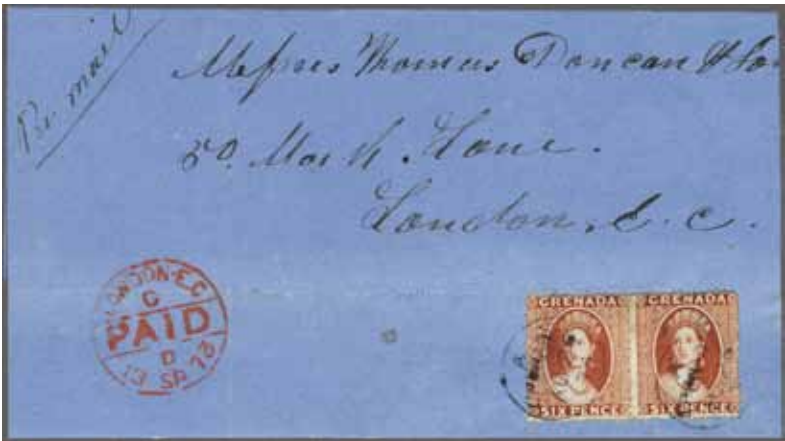 Per mail
Messrs Thomas Duncan & Son
50. Mark Lane.
London, E. C.
LONDON·E.C
C
PAID
D
13 SP 73
GRENADA GRENADA
SIX PENCE SIX PENCE